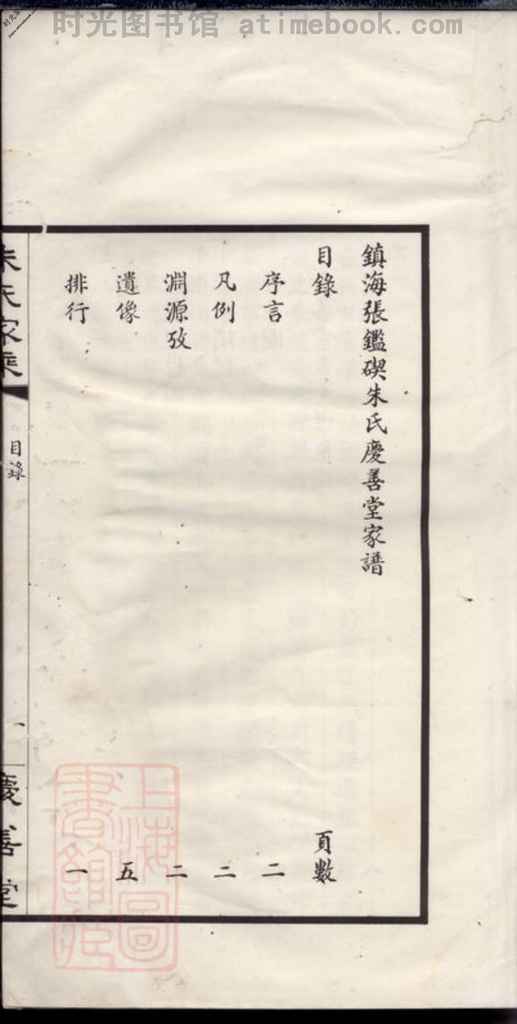 时光图书馆 atimebook.com
鎮海張鑑碶朱氏慶善堂家譜
目錄 頁數
序言 二
凡例 二
淵源攷 二
遺像 五
排行 一
朱氏家乘
目錄
一
慶善堂
上海圖書館藏